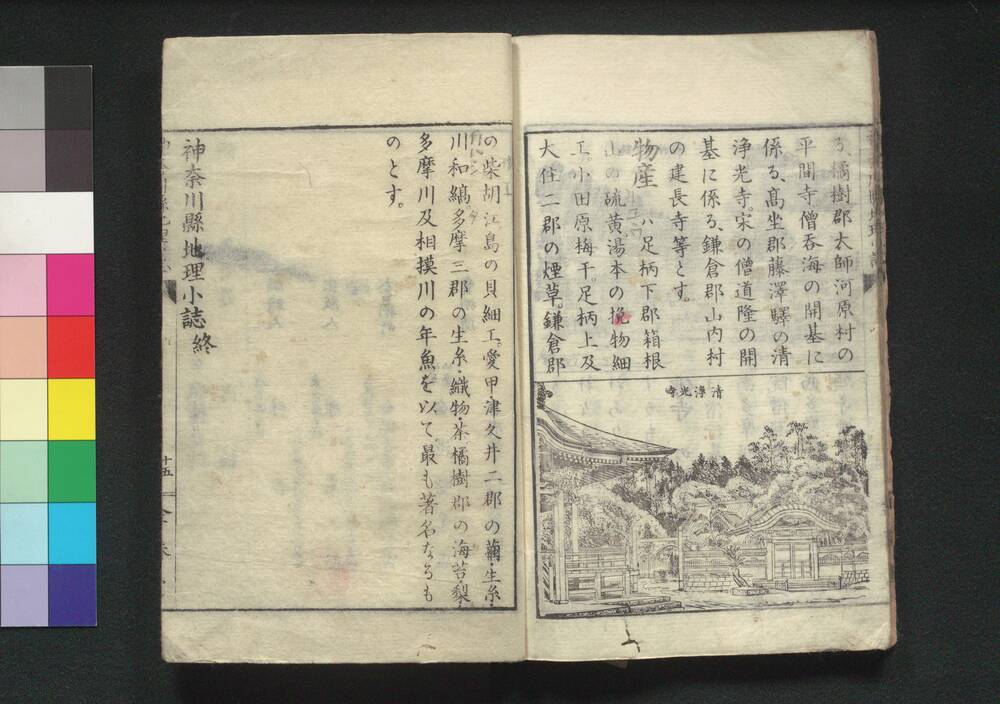 る、橘樹郡太師河原村の
平間寺僧呑海の開基に
係る、髙坐郡藤澤驛の清
浄光寺。宋の僧道隆の開
基に係る、鎌倉郡山内村
の建長寺等とす。
物産 ハ足柄下郡箱根
山の硫黄、湯本の挽物細
工。小田原梅干。足柄上及
大住二郡の煙草。鎌倉郡
清淨光寺
の柴胡江島の貝細工。愛甲・津久井二郡の繭・生糸・
川和縞。多摩三郡の生糸・織物・茶。橘樹郡の海苔・梨・
多摩川及相摸川の年魚を以て最も著名なるも
のとす。
神奈川縣地理小誌終
十五